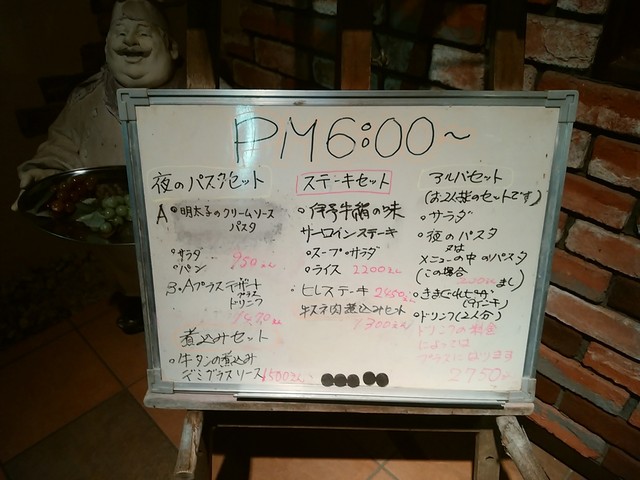 PM6:00~
夜のパスタセット
A 明太子のクリームソース
パスタ
サラダ
パン 950えん
B・Aプラスデザート
プラス
ドリンク
1470えん
煮込みセット
牛タンの煮込み
デミグラスソース 1500えん
ステーキセット
伊予牛絹の味
サーロインステーキ
スープ・サラダ
ライス 2200えん
ヒレステーキ 2450えん
牛スネ肉煮込みセット
1300えん
アルバセット
(お2人様のセットです)
サラダ
夜のパスタ
又は
メニューの中のパスタ
(この場合
まし)
きまぐれピザ
ドリンク(2人分)
ドリンクの料金
によっては
プラスになります
2750